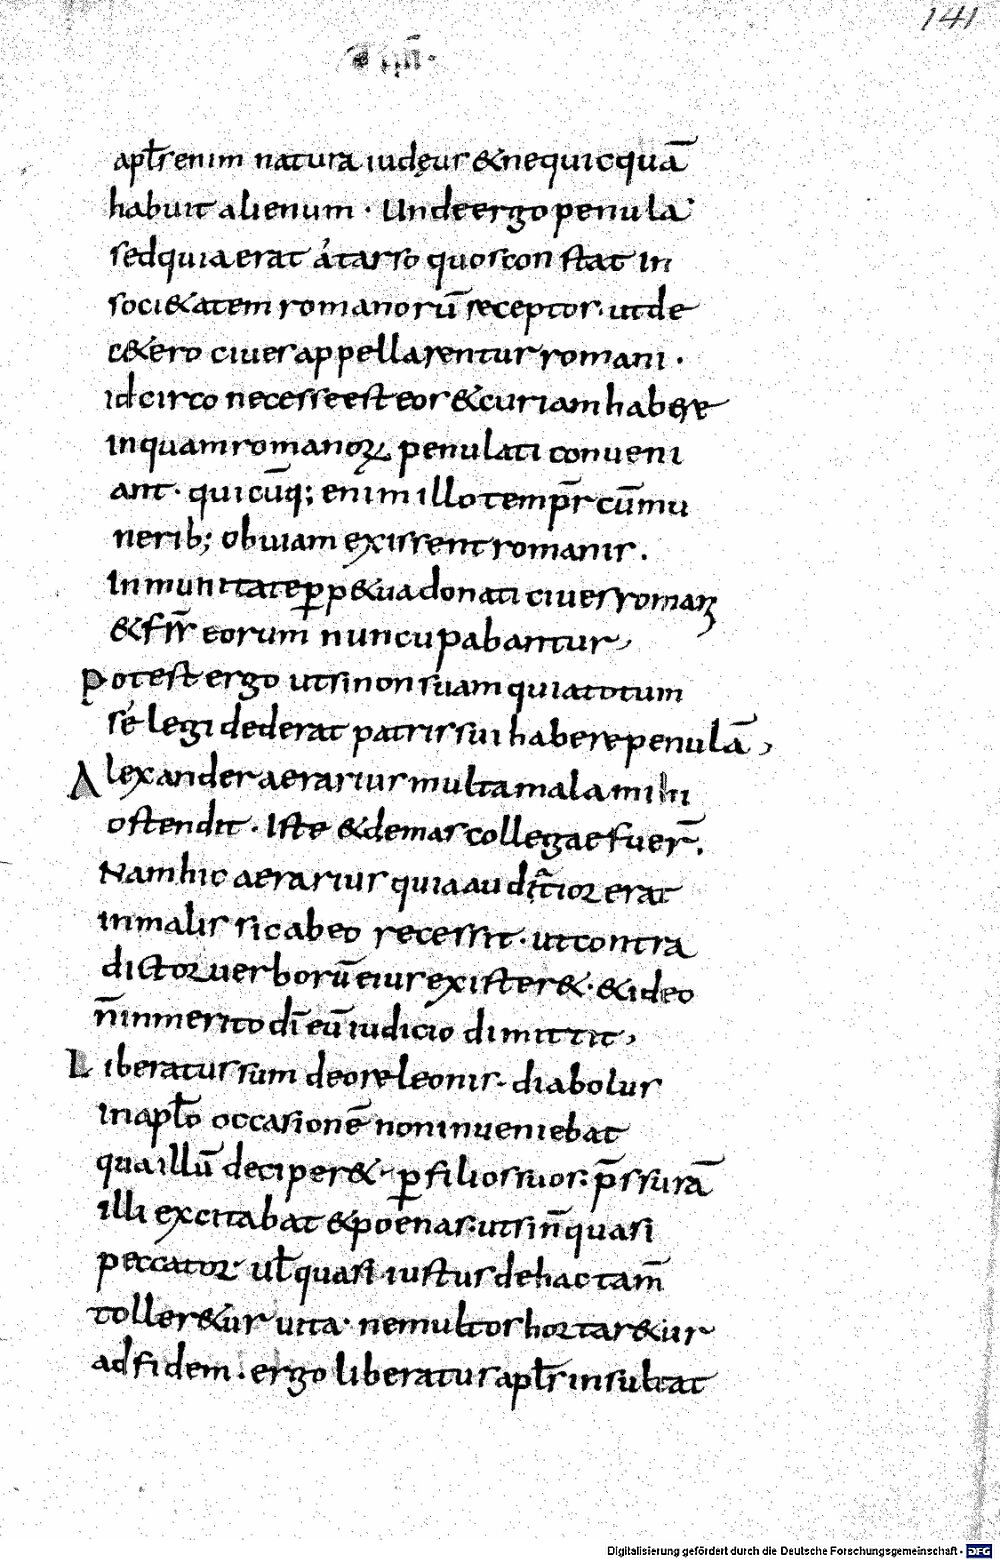 141
IIII.
apl̅s enim natura iudęus & nequicquā
habuit alienum · Unde ergo penula
sed quia erat a tarso quos constat in
soci&atem romanorū receptos · ut de
c&ero ciues appellarentur romani ·
idcirco necesse est eos & curiam habere
in quam romanoꝝ penulati conueni
ant · quicūq; enim illo temp̅r cū mu
nerib; obuiam exissent romanis .
Inmunitate ꝑp&ua donati ciues romaꝝ
& fr̅s eorum nuncupabantur ,
Potest ergo ut si non suam quia totum
sé legi dederat patris sui habere penulā ,
Alexander aerarius multa mala mihi
ostendit · Iste & demas collegae fuer̅ .
Nam hic aerarius quia auditior erat
in malis sic ab eo recessit · ut contra
dictor uerborū eius exister& · & ideo
n̅ inmerito dī eū iudicio dimittit ,
Liberatus sum de ore leonis · diabolus
in apl̅o occasionē non inueniebat
qua illū deciper& · ꝑ filios suos · p̅ssurā
illi excitabat & poenas · ut si n̅ quasi
peccator · ul̅ quasi iustus de hac tam̅
toller&ur uita · ne multos hortar&ur
ad fidem . ergo liberatus apl̅s insultat
Digitalisierung gefördert durch die Deutsche Forschungsgemeinschaft - DFG